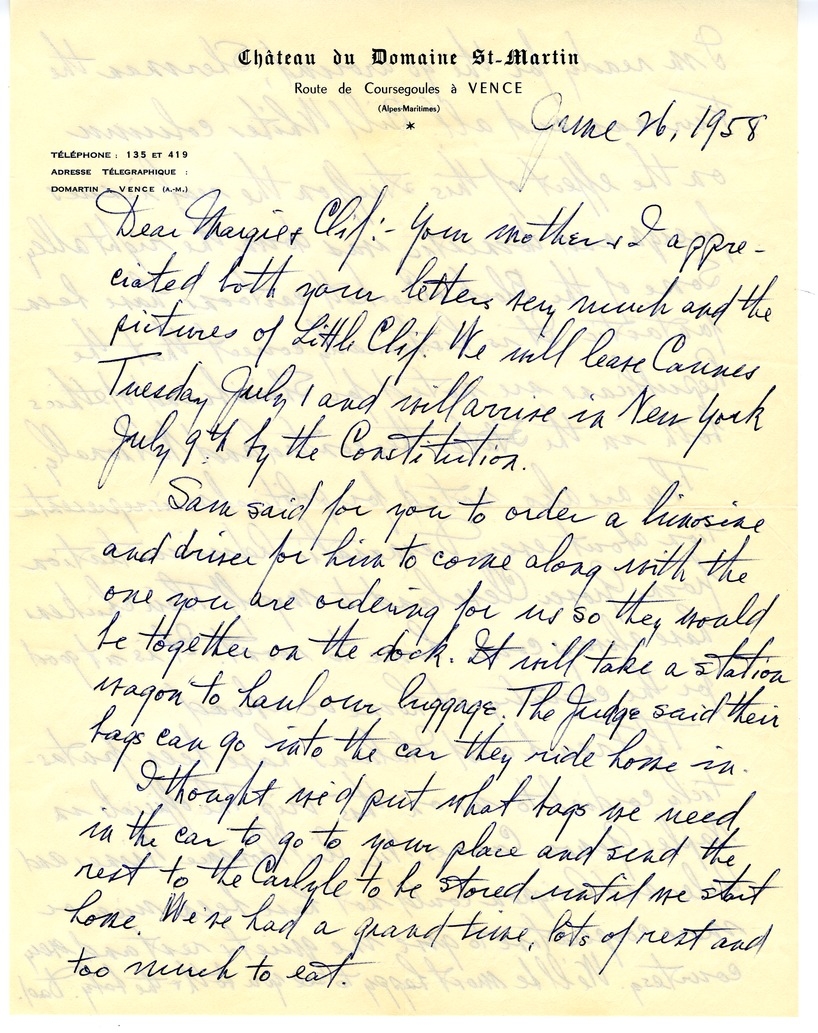 Château du Domaine St-Martin
Route de Coursegoules à VENCE
(Alpes-Maritimes)
*
June 26, 1958
TÉLÉPHONE : 135 ET 419
ADRESSE TÉLEGRAPHIQUE :
DOMARTIN - VENCE (A.-M.)
Dear Margie & Clif:- Your mother & I appre-
ciated both your letters very much and the
pictures of Little Clif. We will leave Cannes
Tuesday July 1 and will arrive in New York
July 9th by the Constitution.
Sam said for you to order a limosine
and driver for him to come along with the
one you are ordering for us so they would
be together on the dock. It will take a station
wagon to haul our luggage. The Judge said their
bags can go into the car they ride home in.
I thought we'd put what bags we need
in the car to go to your place and send the
rest to the Carlyle to be stored until we start
home. We've had a grand time, lots of rest and
too much to eat.